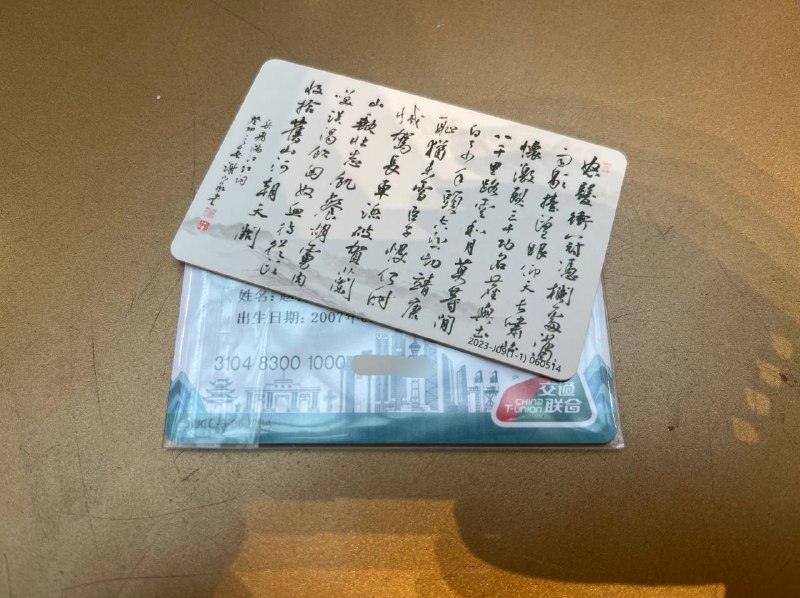 怒髮衝冠憑欄處瀟
雨歇擡望眼仰天長嘯壯
懷激烈三十功名塵與土
八千里路雲和月莫等閒
白了少年頭空悲切靖康
恥猶未雪臣子恨何時
滅駕長車踏破賀蘭
山缺壯志飢餐胡虜肉
笑談渴飲匈奴血待從頭
收拾舊山河朝天闕
岳飛滿江紅詞
2023-J09(1-1) 060514
姓名:
出生日期: 2007年
3104 8300 1000
交通
联合
CHINA
T-UNION